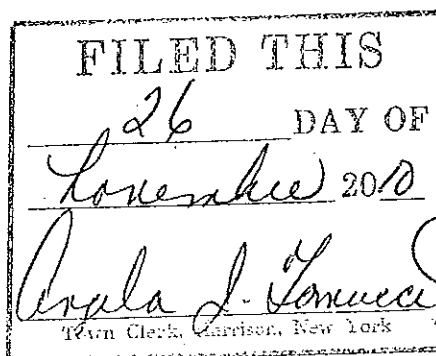 FILED THIS
26 DAY OF
November 2010
Angela
Town Clerk, Harrison, New York